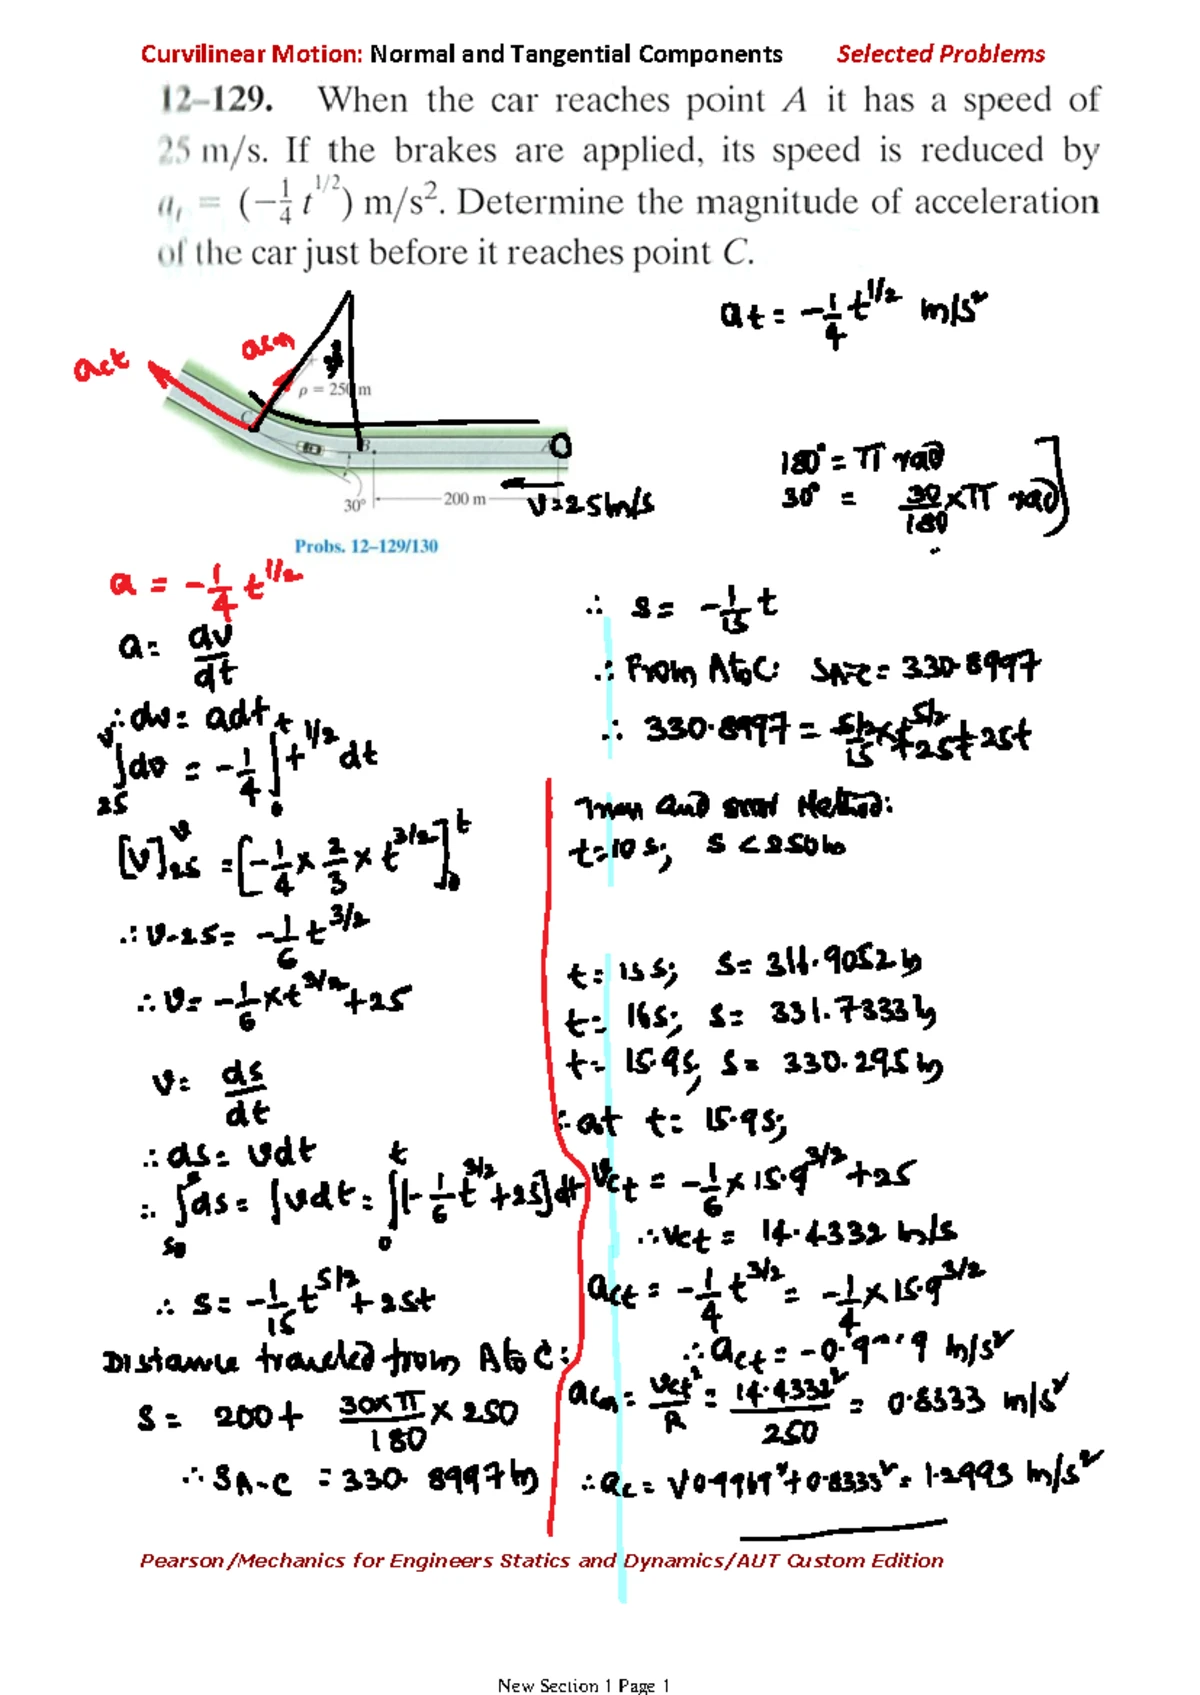 Curvilinear Motion: Normal and Tangential Components Selected Problems
12–129. When the car reaches point A it has a speed of
25 m/s. If the brakes are applied, its speed is reduced by
a_t = (−1/4 t^1/2) m/s². Determine the magnitude of acceleration
of the car just before it reaches point C.
at = −1/4 t^1/2 m/s²
act
acn
ρ = 250 m
C
B
30°
200 m
V=25m/s
180° = π rad
30° = 30/180 × π rad
Probs. 12–129/130
a = −1/4 t^1/2
a = dv/dt
∴ dv = adt
∫dv = −1/4 ∫ t^1/2 dt
25
0
[V]25^v = [−1/4 × 2/3 × t^3/2]0^t
∴ v−25 = −1/6 t^3/2
∴ v = −1/6 × t^3/2 + 25
v = ds/dt
∴ ds = vdt
∴ ∫ds = ∫vdt = ∫[−1/6 t^3/2 + 25]dt
∴ s = −1/15 t^5/2 + 25t
Distance traveled from A to C:
S = 200 + 30×π/180 × 250
∴ SA-C = 330.8997m
∴ s = −1/15 t
∴ From A to C: SA-C = 330.8997
∴ 330.8997 =
and error Method:
t=10 s; s < 250m
t= 15 s; s= 311.9052 m
t= 16s; s= 331.7333 m
t= 15.9s, s= 330.295 m
∴ at t= 15.9s;
Vct = −1/6 × 15.9^3/2 + 25
∴ Vct = 14.4332 m/s
act = −1/4 t^3/2 = −1/4 × 15.9^3/2
∴ act = m/s²
acn = Vct²/R = 14.4332²/250 = 0.8333 m/s²
∴ ac = √0.9969² + 0.8333² = 1.2993 m/s²
Pearson/Mechanics for Engineers Statics and Dynamics/AUT Custom Edition
New Section 1 Page 1